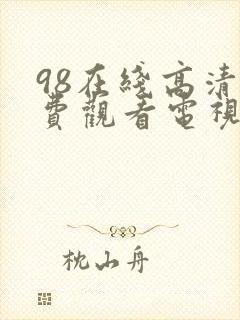 98在綫高清
費觀看電視
枕山舟